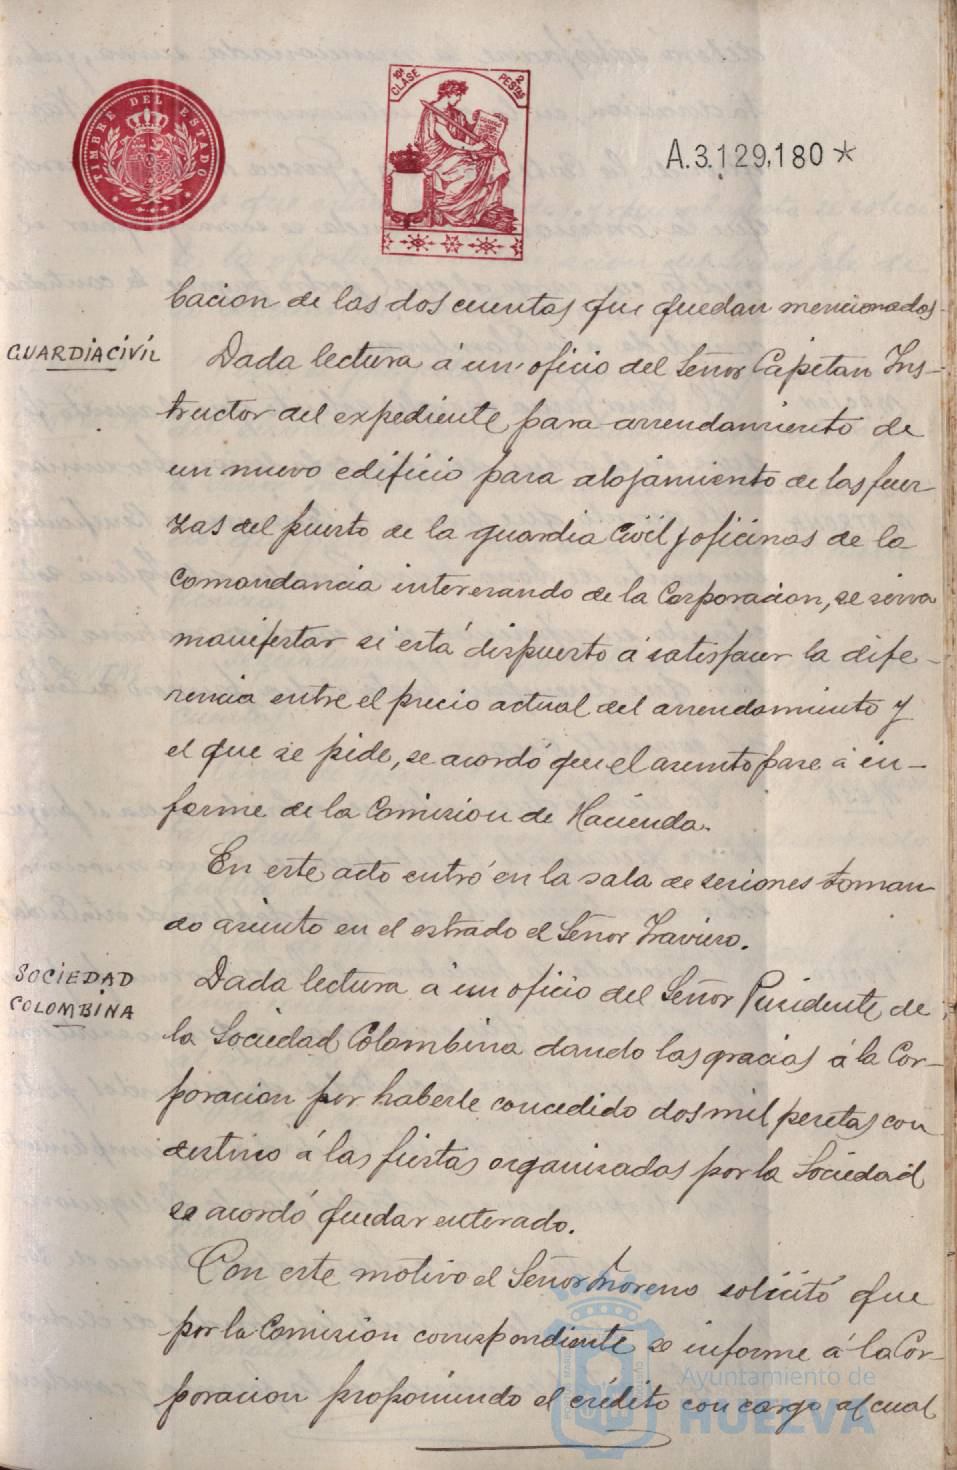 TIMBRE DEL ESTADO
10ª CLASE
2 PESTAS
A.3.129,180 *
bacion de las dos cuentas que quedan mencionadas.
GUARDIA CIVIL
Dada lectura á un oficio del Señor Capitan Ins-
tructor del expediente para arrendamiento de
un nuevo edificio para alojamiento de las fuer
zas del puerto de la guardia Civil y oficinas de la
Comandancia interesando de la Corporacion, se sirva
manifestar si está dispuesto á satisfacer la dife-
rencia entre el precio actual del arrendamiento y
el que se pide, se acordó que el asunto pase á in-
forme de la Comision de Hacienda.
En este acto entró en la sala de sesiones toman
do asiento en el estrado el Señor
SOCIEDAD
COLOMBINA
Dada lectura á un oficio del Señor Presidente de
la Sociedad Colombina dando las gracias á la Cor-
poracion por haberle concedido dos mil pesetas con
destino á las fiestas organizadas por la Sociedad
se acordó quedar enterado.
Con este motivo el Señor Moreno solicitó que
por la Comision correspondiente se informe á la Cor-
poracion proponiendo el crédito con cargo al cual
Ayuntamiento de
HUELVA